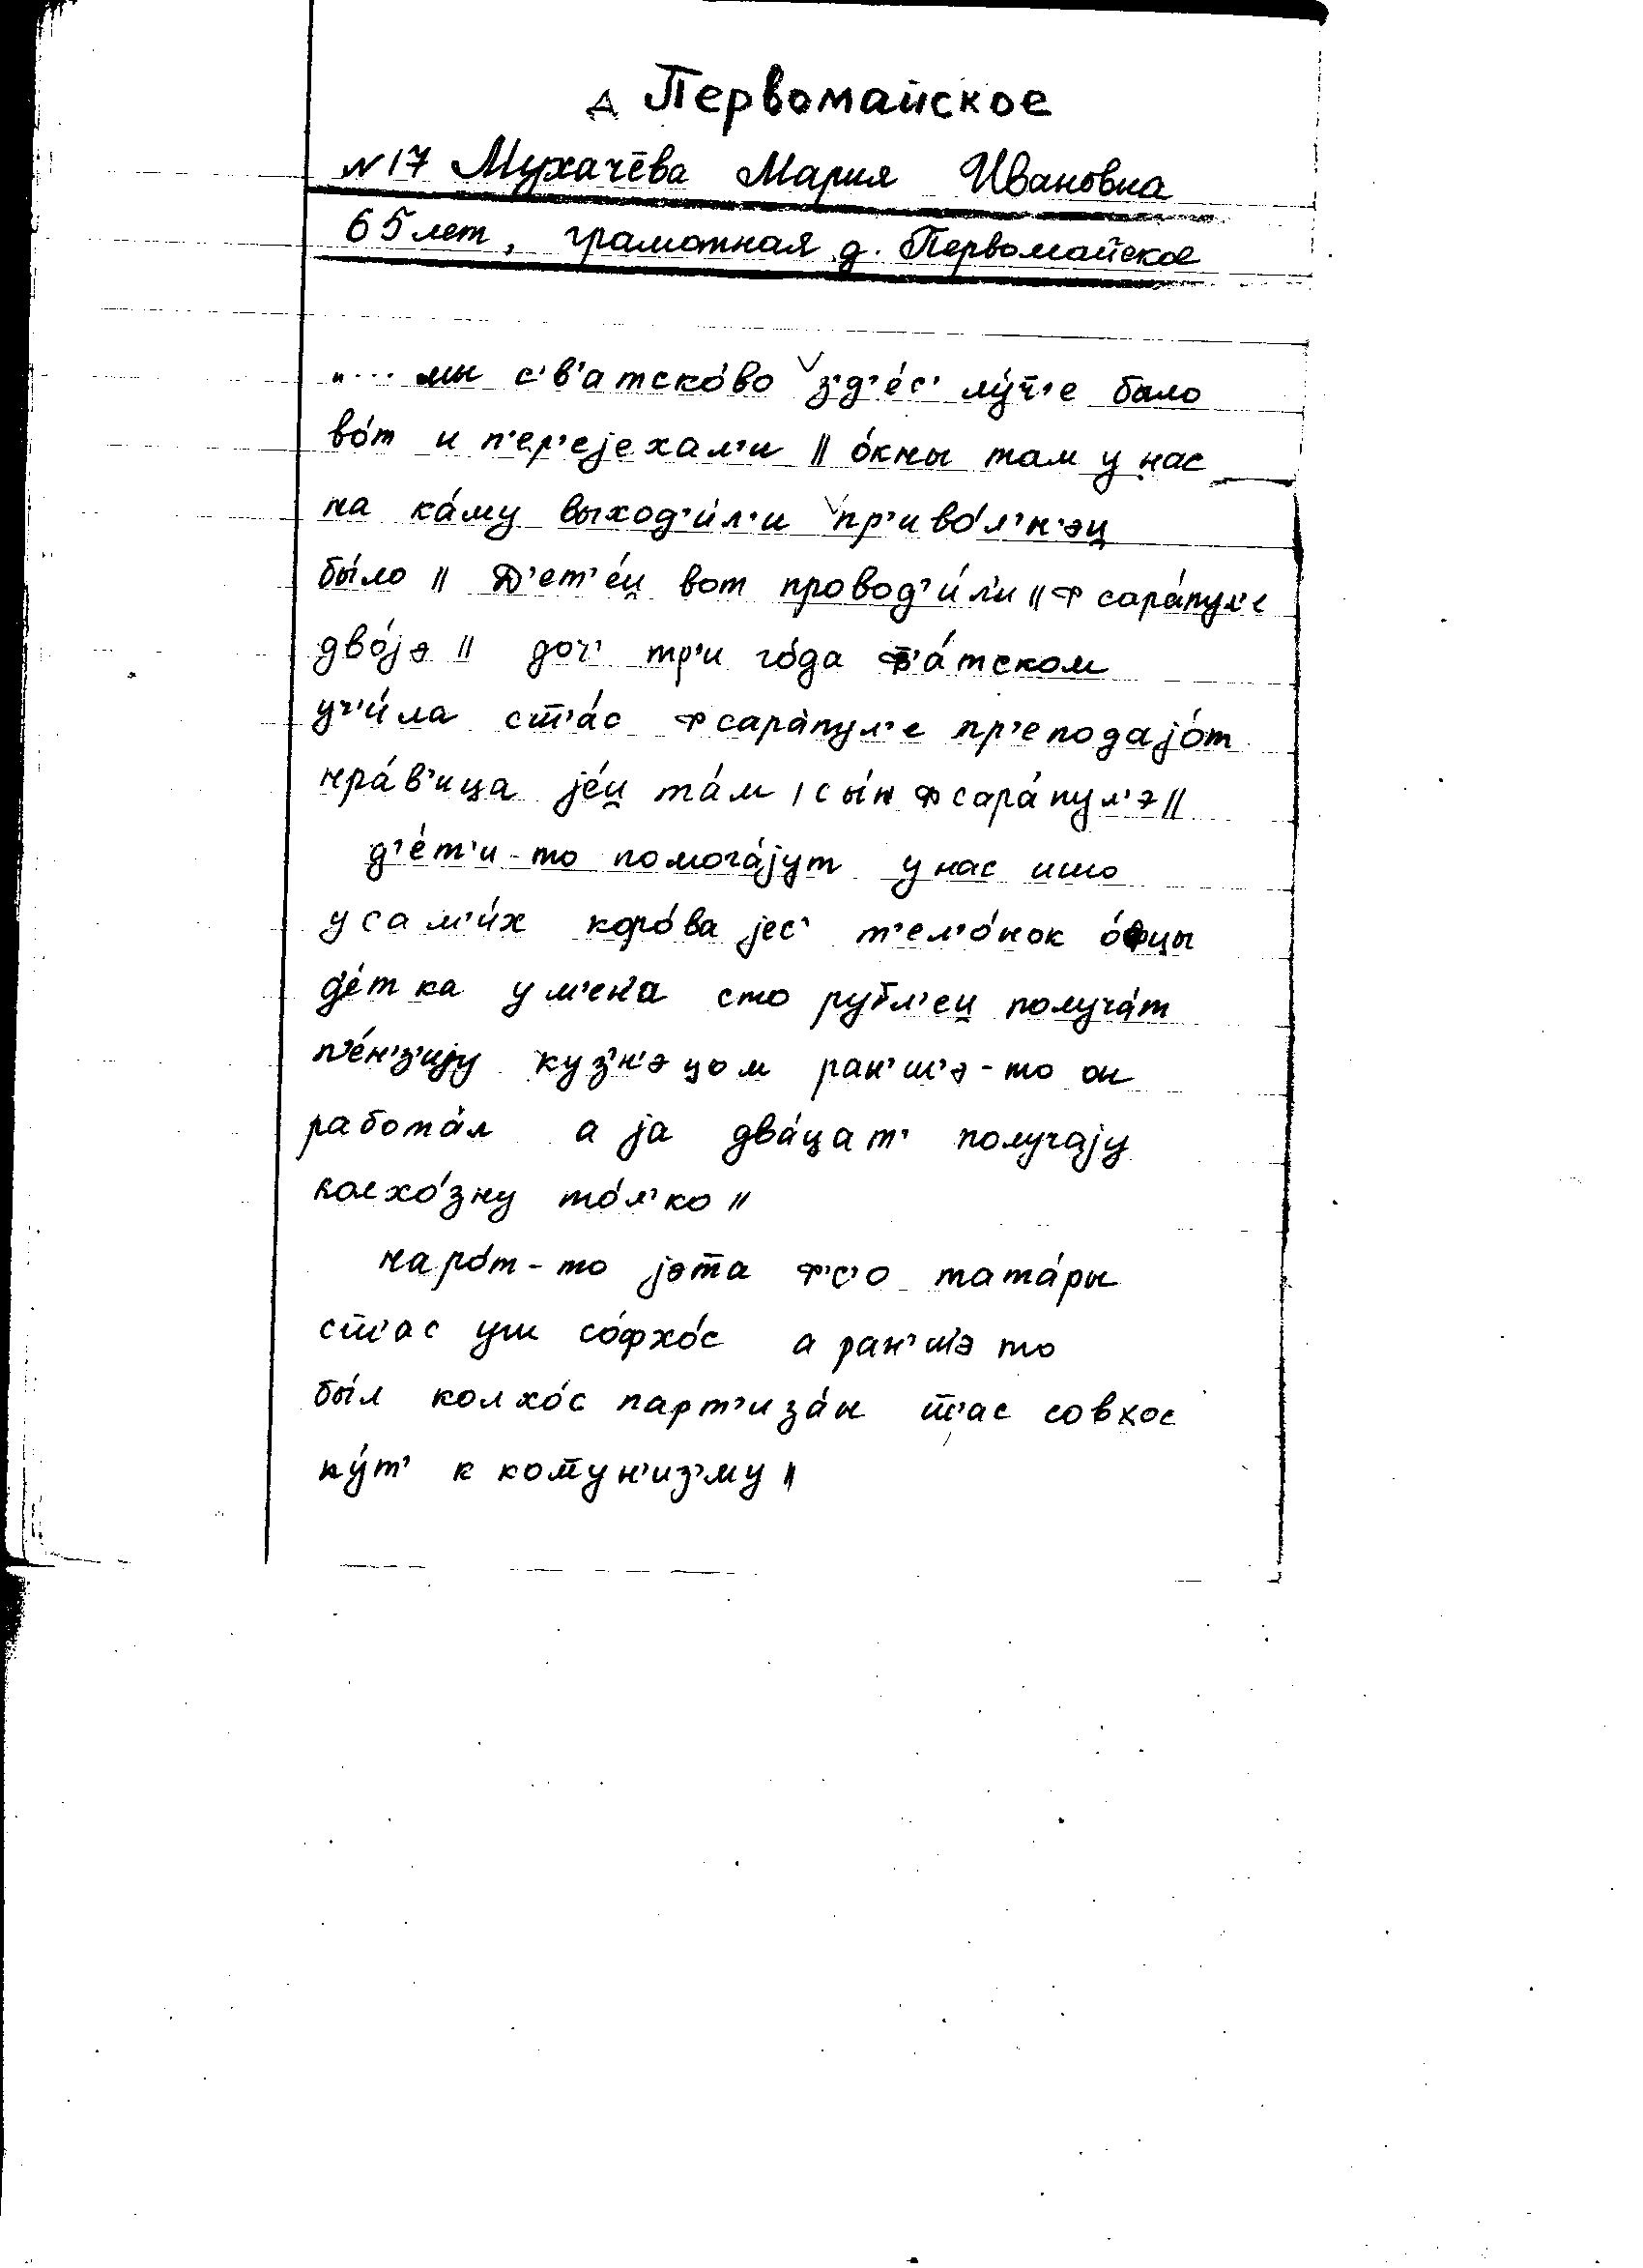 д Первомайское
№17 Мухачёва Мария Ивановна
65 лет, грамотная д. Первомайское
"... мы с'в'атско́во з'д'е́с' лу́ч̅'е было
во́т и п'ер'еjехал'и || о́кны там у нас
на ка́му выход'и́л'и пр'иво́л'н'эц
бы́ло || Д'ет'е́и̯ вот провод'и́л'и || ф сара́пул'е
дво́jэ || доч' тр'и го́да в'а́тском
уч'и́ла ст̅'а́с ф сара́пул'е пр'еподаjо́т
нра́в'ица jе́и̯ та́м | сы́н ф сара́пул'э ||
д'е́т'и-то помога́jут у нас ишо
у сам'и́х коро́ва jес' т'ел'о́нок о́фцы
де́т ка у м'ен'а сто рубл'еи̯ получа́т
п'е́н'з'иjу куз'н'эцом ран'ш'э-то он
работа́л а jа два́цат' получаjу
колхо́зну то́л'ко ||
наро́т-то jэт̅а ф'с'о тата́ры
ст̅'ас уш со́фхо́с а ран'ш'э то
бы́л колхо́с парт'иза́н т̅'ас совхос
пу́т' к ком̅ун'из'му ||